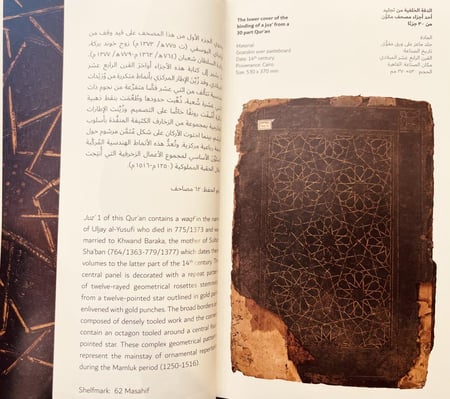 يحتوي الجزء الأول من هذا المصحف على قيد وقف من
اليوسفي (ت ٧٧٥هـ/ ١٣٧٣م) زوج خوند بركة،
السلطان شعبان (٧٦٤هـ/١٣٦٣م-٧٧٩هـ/١٣٧٧م)
إلى كتابة هذه الأجزاء أواخر القرن الرابع عشر
الميلادي. وقد زُيِّن الإطار المركزي بأنماط متكررة من وُرَيْدات
ذهبية
بمجموعة من الزخارف الكثيفة المنفّذة بأسلوب
مركزية. وتُعدُّ هذه الأنماط الهندسية المُركّبة
الأساسي لمجموع الأعمال الزخرفية التي أُنتِجت
الحقبة المملوكية (١٢٥٠م-١٥١٦م).
الحفظ: ٦٢ مصاحف
Juz' 1 of this Qur'an contains a waqf in the name
of Uljay al-Yusufi who died in 775/1373 and was
married to Khwand Baraka, the mother of Sultan
Sha'ban (764/1363-779/1377) which dates the
volumes to the latter part of the 14th century. The
central panel is decorated with a repeat pattern
of twelve-rayed geometrical rosettes stemming
from a twelve-pointed star outlined in gold
enlivened with gold punches. The broad borders
composed of densely tooled work and the corners
contain an octagon tooled around a central
pointed star. These complex geometrical patterns
represent the mainstay of ornamental repertoire
during the Mamluk period (1250-1516).
Shelfmark: 62 Masahif
The lower cover of the
binding of a juz' from a
30 part Qur'an
Material:
Goatskin over pasteboard
Date: 14th century
Provenance: Cairo
Size: 530 x 370 mm
الدفة الخلفية من تجليد
أحد أجزاء مصحف مكوّن
من ٣٠ جزءًا
المادة:
جلد ماعز على ورق مقوّى
تاريخ الصناعة:
القرن الرابع عشر الميلادي
مكان الصناعة: القاهرة
الحجم: ٥٣٠ × ٣٧٠ مم